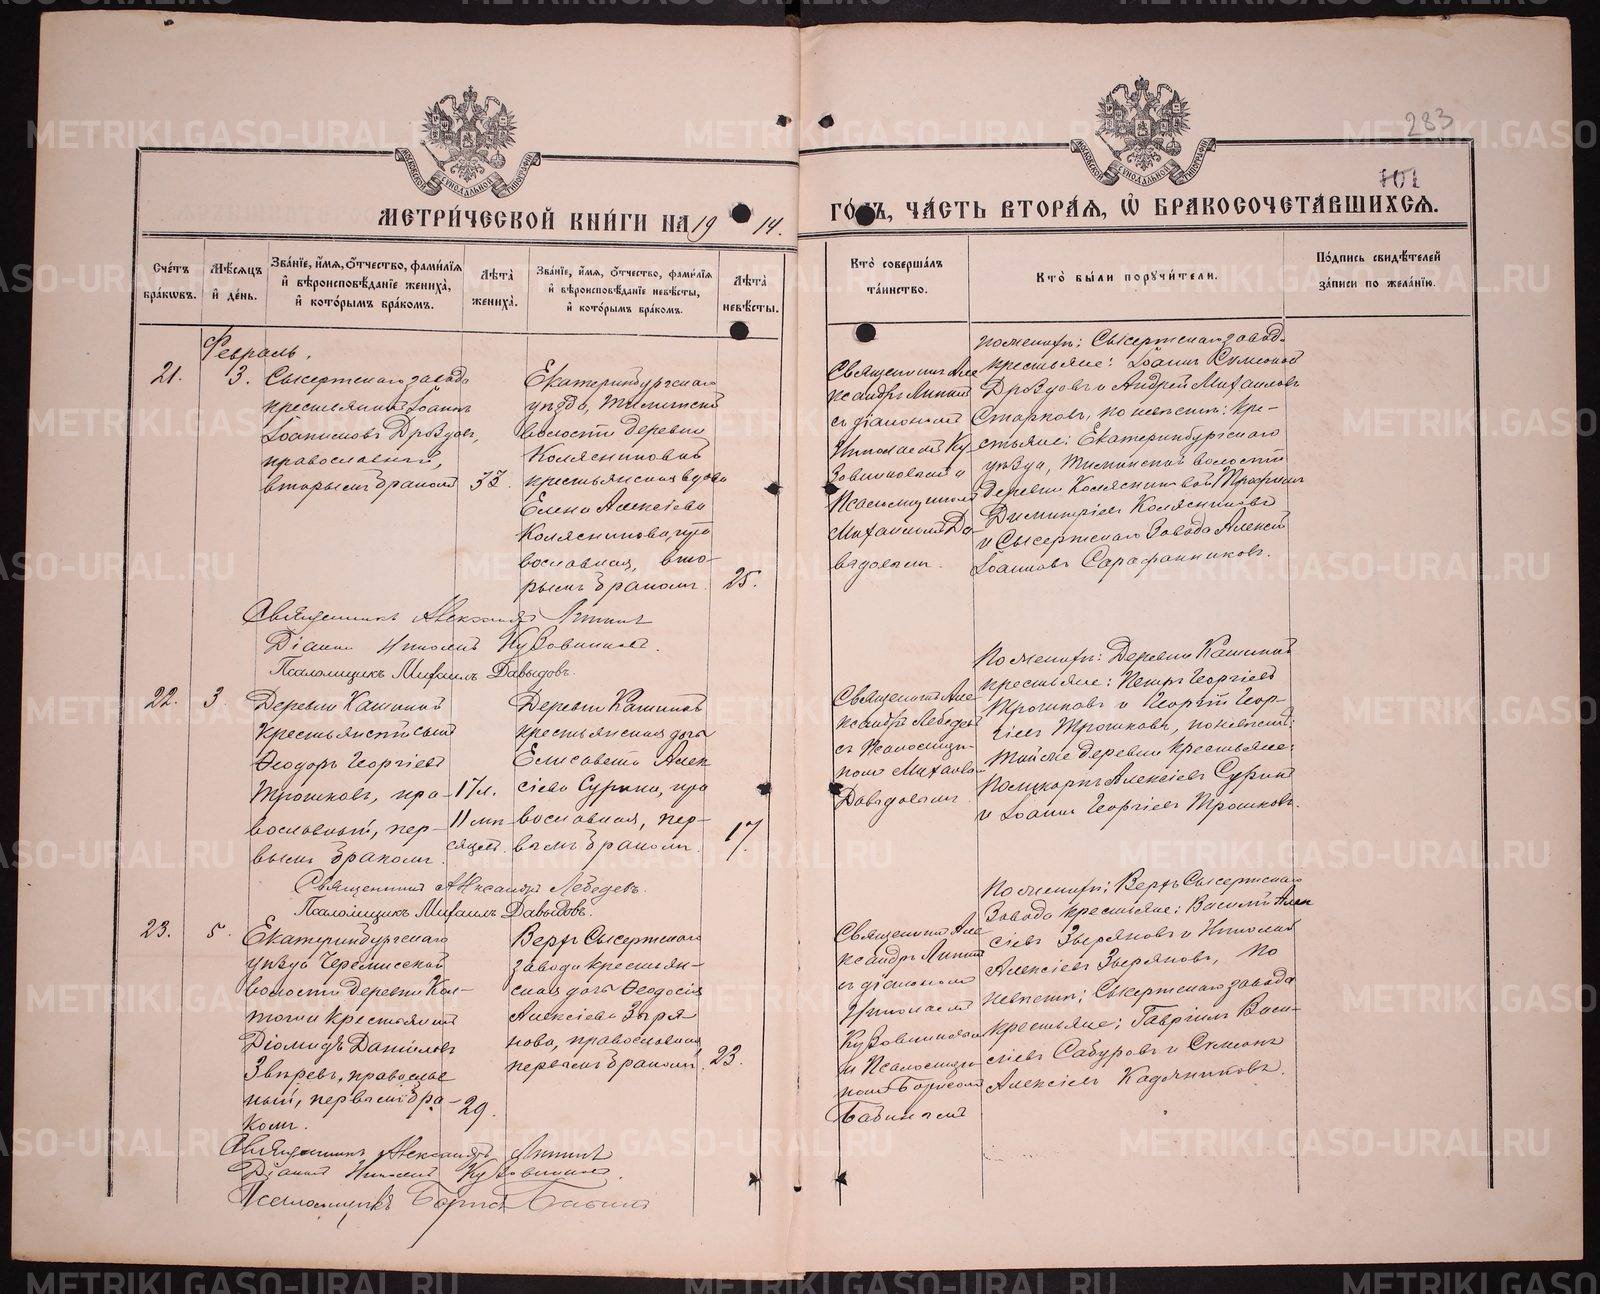 283
101
МОСКОВСКОЙ СѴНОДАЛЬНОЙ ТИПОГРАФІИ
МОСКОВСКОЙ СѴНОДАЛЬНОЙ ТИПОГРАФІИ
МЕТРИ́ЧЕСКОЙ КНИ́ГИ НА 1914.
ГО́ДЪ, ЧА́СТЬ ВТОРА́Я, Ѽ БРАКОСОЧЕТА́ВШИХСЯ.
Сче́тъ бра́кѡвъ.
Мѣ́сяцъ и҆ де́нь.
Зва́ніе, и҆́мя, ѻ҆́тчество, фами́лія и҆ вѣроисповѣ́даніе жениха̀, и҆ кото́рымъ бра́комъ.
Лѣ́та жениха̀.
Зва́ніе, и҆́мя, ѻ҆́тчество, фами́лія и҆ вѣроисповѣ́даніе невѣ́сты, и҆ кото́рымъ бра́комъ.
Лѣ́та невѣ́сты.
Кто̀ соверша́лъ та́инство.
Кто̀ бы́ли поручи́тели.
По́дпись свидѣ́телей за́писи по жела́нію.
Февраль.
21.
3.
Сысертскаго завода
крестьянинъ Іоаннъ
Іоанновъ Дроздовъ,
православный,
вторымъ бракомъ
33.
Екатеринбургскаго
уѣзда,
волости деревни
Колясниковой
крестьянская вдова
Елена Алексіева
Колясникова, пра
вославная, вто-
рымъ бракомъ.
25.
Священникъ Але
ксандръ
съ діакономъ
Николаемъ Ку
зовниковымъ и
Псаломщикомъ
Михаиломъ Да-
выдовымъ.
По женихѣ: Сысертскаго завода
крестьяне: Іоаннъ Симеоновъ
Дроздовъ и Андрей Михаиловъ
Старковъ, по невѣстѣ: кре-
стьяне: Екатеринбургскаго
уѣзда, волости
деревни Колясниковой Трофимъ
Димитріевъ Колясниковъ
и Сысертскаго Завода Алексѣй
Іоанновъ Сарафанниковъ.
Священникъ Александръ
Діаконъ Николай Кузовниковъ.
Псаломщикъ Михаилъ Давыдовъ.
22.
3.
Деревни Кашиной
крестьянскій сынъ
Ѳеодоръ Георгіевъ
Трошковъ, пра-
вославный, пер-
вымъ бракомъ.
17 л.
11 мѣ
сяцевъ.
Деревни Кашиной
крестьянская дочь
Елисавета Алек
сіева Сурина, пра
вославная, пер-
вымъ бракомъ.
17.
Священникъ Але
ксандръ Лебедевъ
съ Псаломщи-
комъ Михаиломъ
Давыдовымъ
По женихѣ: Деревни Кашиной
крестьяне: Петръ Георгіевъ
Трошковъ и Георгій Геор-
гіевъ Трошковъ, по невѣстѣ:
той же деревни крестьяне:
Поликарпъ Алексіевъ Суринъ
и Іоаннъ Георгіевъ Трошковъ.
Священникъ Александръ Лебедевъ.
Псаломщикъ Михаилъ Давыдовъ.
23.
5.
Екатеринбургскаго
уѣзда Черемисской
волости деревни Кол-
крестьянинъ
Діомидъ Даніиловъ
Звѣревъ, православ
ный, первымъ бра-
комъ.
29.
Верхъ Сысертскаго
завода крестьян-
ская дочь Ѳеодосія
Алексіева
православная
первымъ бракомъ.
23.
Священникъ Але
ксандръ
съ діакономъ
Николаемъ
Кузовниковымъ
и Псаломщи
комъ Борисомъ
По женихѣ; Верхъ Сысертскаго
Завода крестьяне: Василій Алек
сіевъ и Николай
Алексіевъ по
невѣстѣ; Сысертскаго завода
крестьяне; Гавріилъ Васи-
ліевъ Сабуровъ и Симеонъ
Алексіевъ Кадочниковъ.
Священникъ Александръ
Діаконъ Николай Кузовниковъ.
Псаломщикъ Борисъ
METRIKI.GASO-URAL.RU